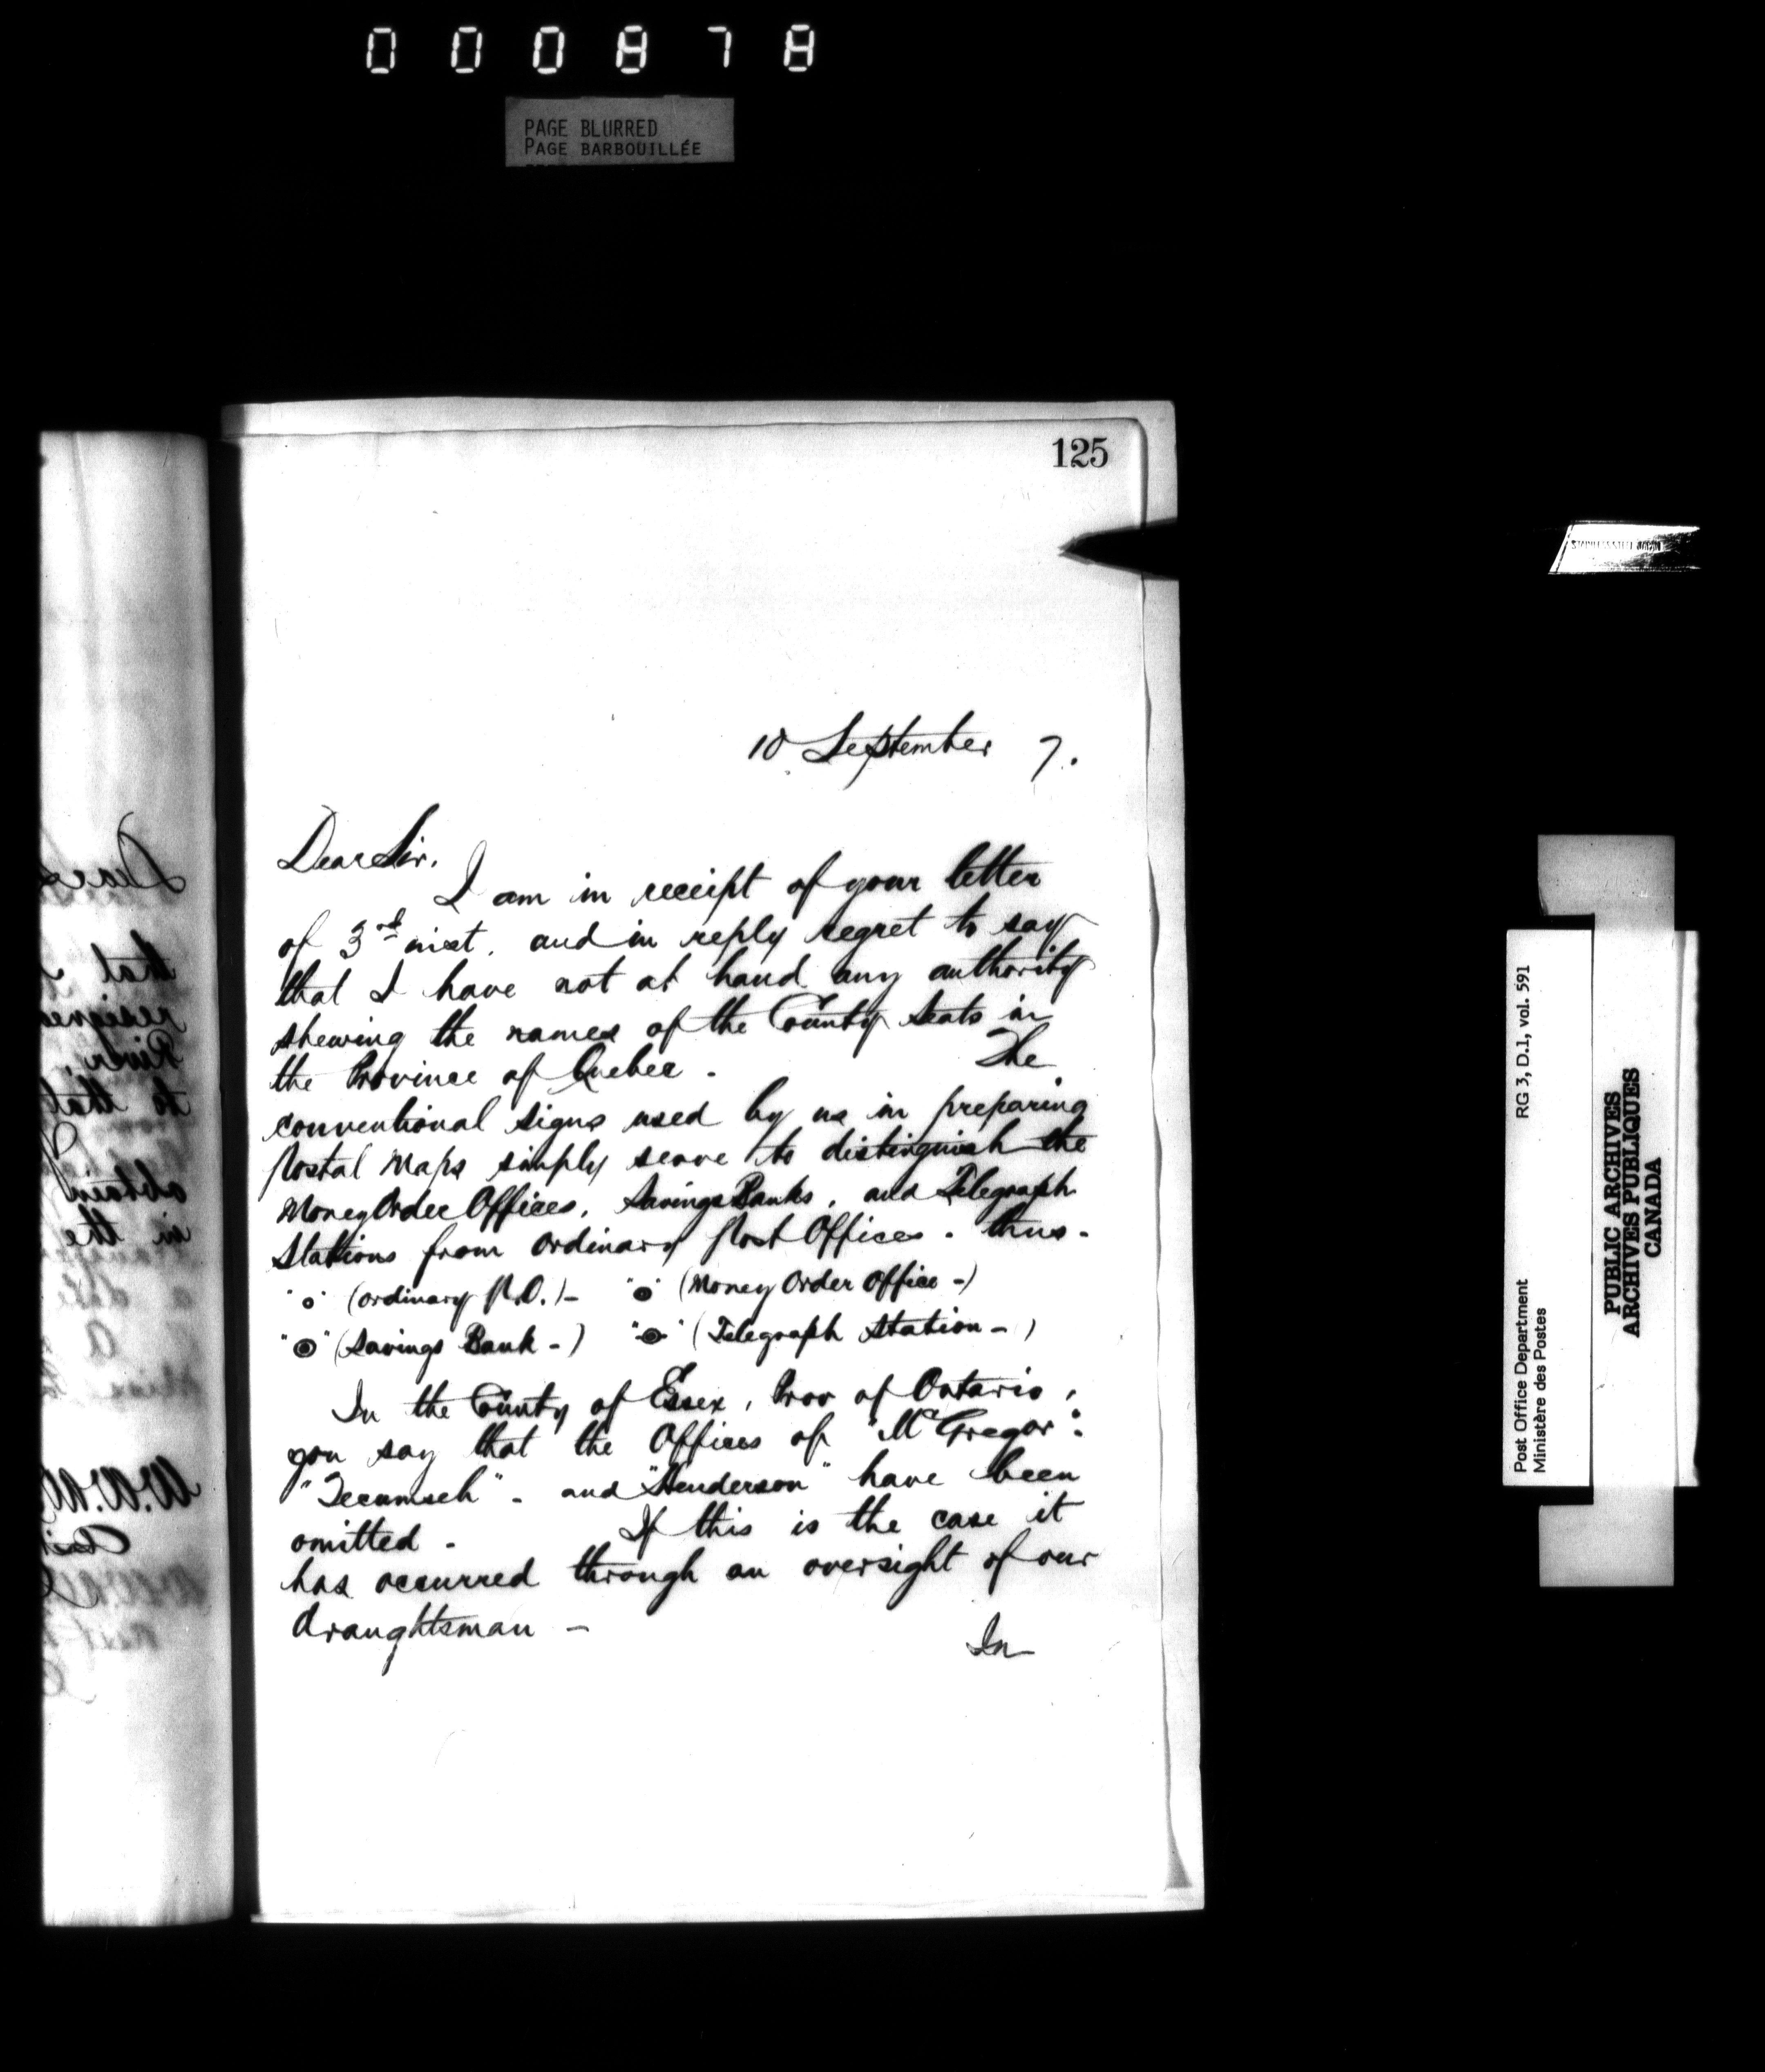 000878
PAGE BLURRED
PAGE BARBOUILLÉE
125
10 September 7.
Dear Sir,
I am in receipt of your letter
of 3rd inst. and in reply regret to say
that I have not at hand any authority
shewing the names of the County Seats in
the Province of Quebec - The
conventional signs used by us in preparing
Postal Maps simply serve to distinguish the
Money Order Offices, Savings Banks, and Telegraph
Stations from ordinary Post Offices - thus -
(ordinary P.O.) - (Money Order Office -)
(Savings Bank -) (Telegraph Station -)
In the County of Essex, Prov of Ontario,
you say that the Offices of "McGregor".
"Tecumseh" - and "Henderson" have been
omitted - If this is the case it
has occurred through an oversight of our
draughtsman -
In
Post Office Department RG 3, D.1, vol. 591
Ministère des Postes
PUBLIC ARCHIVES
ARCHIVES PUBLIQUES
CANADA